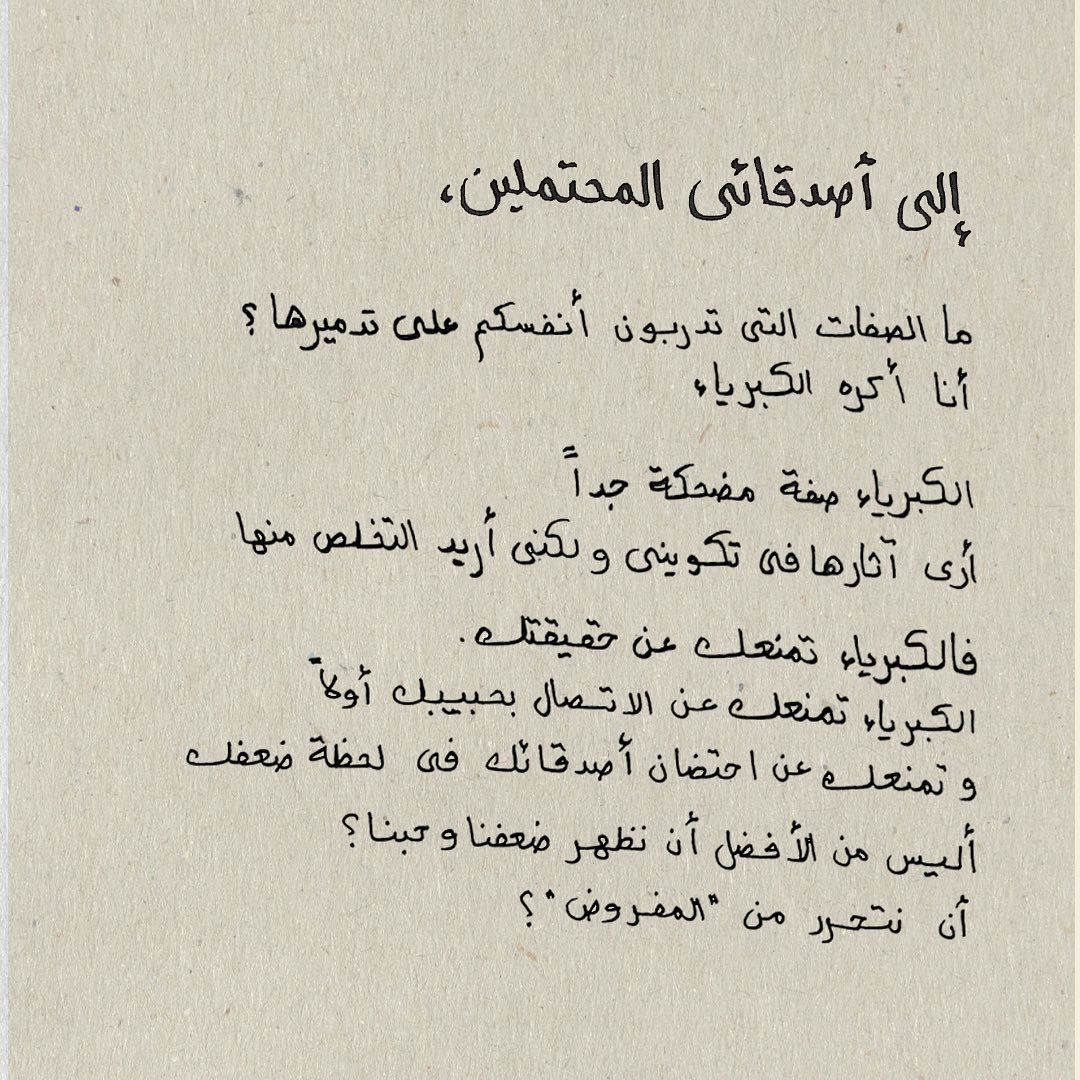 إلى أصدقائى المحتملين،
ما الصفات التى تدربون أنفسكم على تدميرها؟
أنا أكره الكبرياء
الكبرياء صفة مضحكة جداً
أرى آثارها فى تكوينى ولكنى أريد التخلص منها
فالكبرياء تمنعك عن حقيقتك.
الكبرياء تمنعك عن الاتصال بحبيبك أولاً
و تمنعك عن احتضان أصدقائك فى لحظة ضعفك
أليس من الأفضل أن نظهر ضعفنا و حبنا؟
أن نتحرر من "المفروض"؟